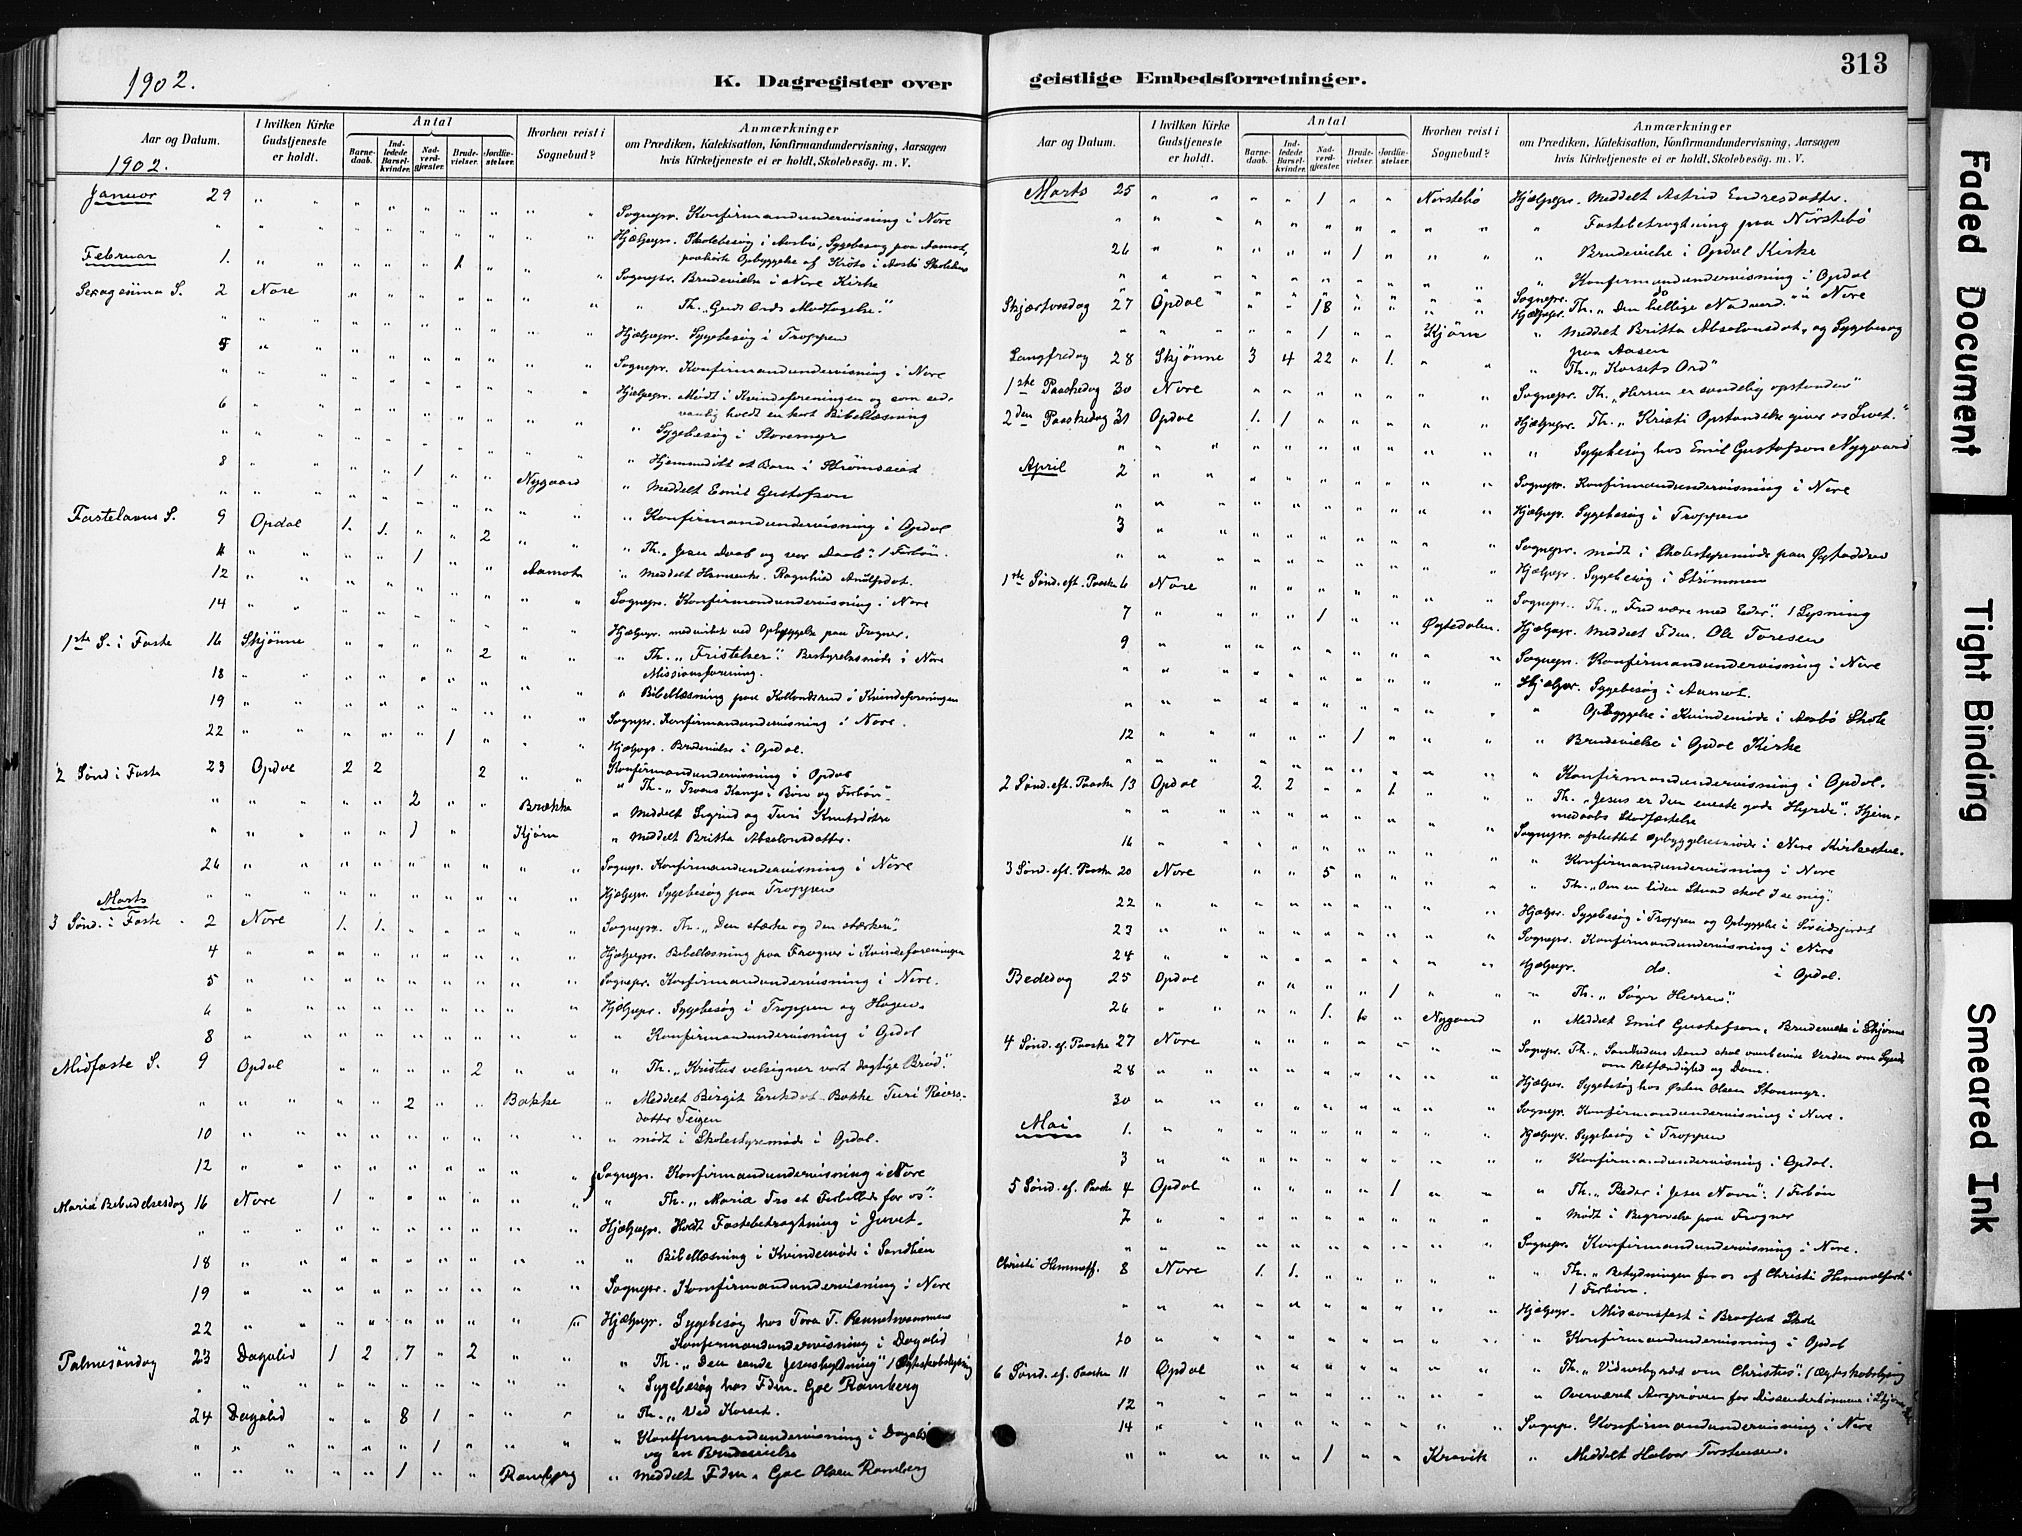 1902.
K. Dagregister over
Aar og Datum.
1902.
I hvilken Kirke Gudstjeneste er holdt.
Antal
Barnedaab.
Indledede Barselkvinder.
Nadverdgjæster.
Brudevielser.
Jordfæstelser.
Hvorhen reist i Sognebud?
Anmærkninger
om Prædiken, Katekisation, Konfirmandundervisning, Aarsagen
hvis Kirketjeneste ei er holdt, Skolebesög. m. V.
Januar 29 Sognepr. Konfirmandundervisning i Nore
Hjælpepr. Skolebesög i Aasbö, Sygebesög paa Aamot,
Opbyggelse af Kröts i Aasbö Skolehus
Februar 1. 1 Sognepr. Brudevielse i Nore Kirke
Sexagesima S. 2 Nore Th. „Guds Ords Modtagelse."
Hjælpepr. Sygebesög i Troppen
5 Sognepr. Konfirmandundervisning i Nore
Hjælpepr. Mödt i Kvindeforeningen og som sed-
vanlig holdt en kort Bibellæsning
6 Sygebesög i Storemyr
8 Hjemmedöbt et Barn i Strömseiet
1 Nygaard Meddelt Emil Gustafson
Konfirmandundervisning i Opdal
Fastelavns S. 9 Opdal 1. 1. 2 Th. „Jesu Daab og vor Daab". 1 Forbön.
1 Aamot Meddelt Ragnhild
12 Sognepr. Konfirmandundervisning i Nore
14 Hjælpepr. medvirket ved Opbyggelse paa Frogner.
1ste S. i Faste 16 Skjönne 2 Th. „Fristelser". Bestyrelsesmöde i Nore
Missionsforening.
18 Bibellæsning paa i Kvindeforeningen
19 Sognepr. Konfirmandundervisning i Nore.
22 1 Hjælpepr. Brudevielse i Opdal.
Konfirmandundervisning i Opdal
2 Sönd i Faste 23 Opdal 2 2 2 Th. „Troens Kamp i Bön og Forbön".
2 Brække Meddelt Sigrid og Turi Knutsdötre
1 Kjörn Meddelt Britta Absalonsdatter.
26 Sognepr. Konfirmandundervisning i Nore
Hjælpepr. Sygebesög paa Troppen
Marts
3 Sönd. i Faste 2 Nore 1. 1. Sognepr. Th. „Den stærke og den stærkere".
4 Hjælpepr. Bibellæsning paa Frogner i Kvindeforeningen
5 Sognepr. Konfirmandundervisning i Nore.
6 Hjælpepr. Sygebesög i Troppen og Hagen.
8 Konfirmandundervisning i Opdal
Midfaste S. 9 Opdal 2 Th. „Kristus velsigner vort daglige Bröd".
2 Bakke Meddelt Birgit Eriksdat. Bakke Turi
datter Teigen
10 mödt i Skolestyremöde i Opdal.
12 Sognepr. Konfirmandundervisning i Nore
Mariæ Bebudelsesdag 16 Nore 1 Th. „Mariæ Tro et Forbillede for os".
Hjælpepr. Holdt Fastebetragtning i Juvet.
18 Bibellæsning i Kvindemöde i Sandlien
19 Sognepr. Konfirmandundervisning i Nore
22 Hjælpepr. Sygebesög hos Tora T.
Konfirmandundervisning i Dagalid
Palmesöndag 23 Dagalid 1 2 7 2 Th. „Den sande Jesushyldning" 1 Ægteskabslysning
Sygebesög hos Fdm. Goe Ramberg
24 Dagalid 8 1 Th. „Ved Korset.
1 Konfirmandundervisning i Dagalid
og en Brudevielse
1 Ramberg Meddelt Fdm. Goe Olsen Ramberg
geistlige Embedsforretninger.
313
Aar og Datum.
I hvilken Kirke Gudstjeneste er holdt.
Antal
Barnedaab.
Indledede Barselkvinder.
Nadverdgjæster.
Brudevielser.
Jordfæstelser.
Hvorhen reist i Sognebud?
Anmærkninger
om Prædiken, Katekisation, Konfirmandundervisning, Aarsagen
hvis Kirketjeneste ei er holdt, Skolebesög. m. V.
Marts 25 1 Nörstebö Hjælpepr. Meddelt Astrid Endresdatter.
Fastebetragtning paa Nörstebö
26 1 Brudevielse i Opdal Kirke
Konfirmandundervisning i Opdal
Sognepr. do i Nore
Skjærtorsdag 27 Opdal 18 Hjælpepr. Th. „Den hellige Nadverd."
1 Kjörn Meddelt Britta Absalonsdat., og Sygebesög
paa Aasen
Langfredag 28 Skjönne 3 4 22 1. Th. „Korsets Ord"
1ste Paaskedag 30 Nore Sognepr. Th. „Herren er sandelig opstanden"
2den Paaskedag 31 Opdal 1. 1 Hjælpepr. Th. „Kristi Opstandelse giver os Livet."
Sygebesög hos Emil Gustafson Nygaard
April 2 Sognepr. Konfirmandundervisning i Nore
Hjælpepr. Sygebesög i Troppen
3 Sognepr. mödt i Skolestyremöde paa
Hjælpepr. Sygebesög i Strömmen
1ste Sönd. eft. Paaske 6 Nore Sognepr. Th. „Fred være med Eder". 1 Lysning
7 1 Øgtedalen Hjælpepr. Meddelt Fdm. Ole Toresen
9 Sognepr. Konfirmandundervisning i Nore
Hjælpepr. Sygebesög i Aamot.
Opbyggelse i Kvindemöde i Aasbö Skole
12 1 Brudevielse i Opdal Kirke
Konfirmandundervisning i Opdal.
2 Sönd. eft. Paaske 13 Opdal 2. 2 1. Th. „Jesus er den eneste gode Hyrde". Hjem-
medaabs Stadfæstelse
16 Sognepr. afsluttet Opbyggelsesmöde i Nore Kirkestue.
Konfirmandundervisning i Nore
3 Sönd. eft. Paaske 20 Nore 5 Th. „Om en liden Stund skal I se mig".
22 Hjælpepr. Sygebesög i Troppen og Opbyggelse i
23 Sognepr. Konfirmandundervisning i Nore
24 Hjælpepr. do. i Opdal.
Bededag 25 Opdal 1 Th. „Söger Herren".
26 1. Nygaard Meddelt Emil Gustafson, Brudevielse i Skjönne
4 Sönd. ef. Paaske 27 Nore Sognepr. Th. „Sandhedens Aand skal overbevise Verden om Synd
om Retfærdighed og Dom.
28 Hjælpepr. Sygebesög hos Østen Olsen Storemyr.
30 Sognepr. Konfirmandundervisning i Nore.
Mai 1. Hjælpepr. Sygebesög i Troppen
3 Konfirmandundervisning i Opdal.
5 Sönd. ef. Paaske 4 Opdal 1 Th. „Beder i Jesu Navn". 1 Forbön
7 Mödt i Begravelse paa Frogner
Sognepr. Konfirmandundervisning i Nore.
Christi Himmelf. 8 Nore 1. 1. Th. „Betydningen for os af Christi Himmelfart"
1 Forbön.
Hjælpepr. Missionsfest i Skole
10 Konfirmandundervisning i Opdal
6 Sönd. ef. Paaske 11 Opdal Th. „Vidnesbyrdet om Christus". 1 Ægteskabslysning
12 Overværet Aarspröven for i Skjönne
14 Sognepr. Konfirmandundervisning i Nore
1 Kravik Meddelt Halvor Torstensen.
Faded Document
Tight Binding
Smeared Ink